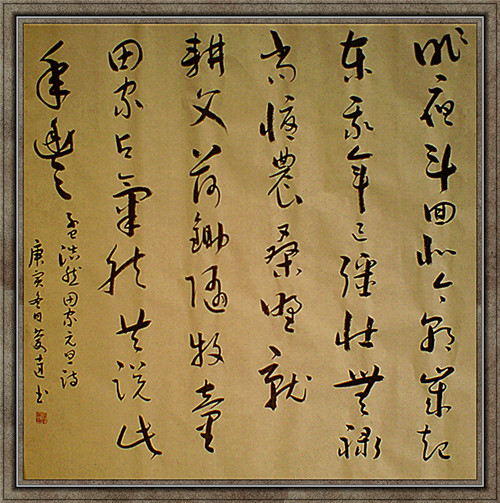 昨夜斗回北今朝歲起
东我年已彊壮無禄
尚忧農桑野就
耕父荷鋤随牧童
田家占氣候共説此
年豐
孟浩然田家元日詩
庚寅冬日书